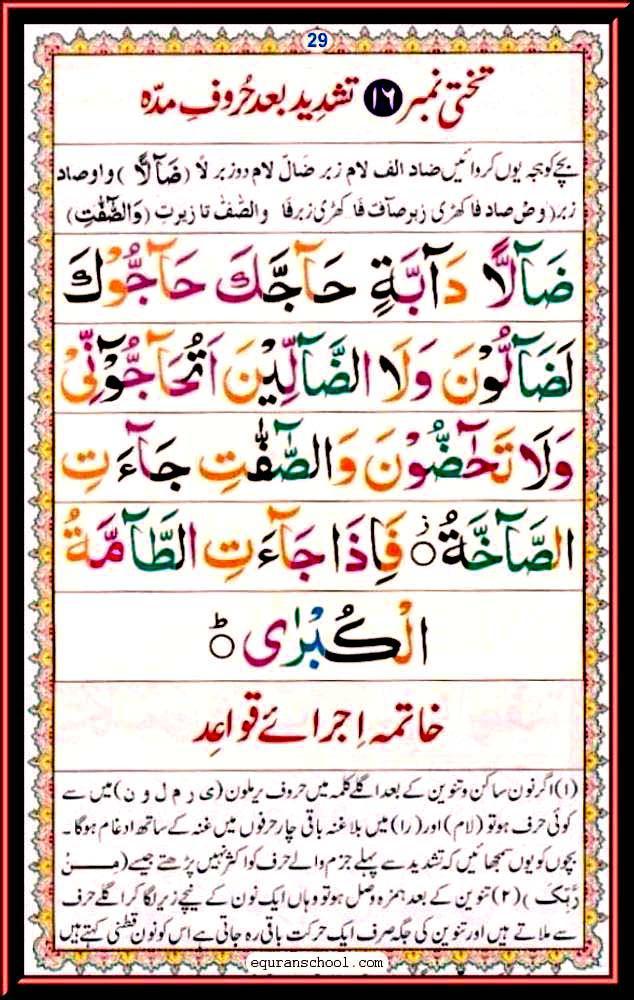 29
تختی نمبر ۱۶ تشدید بعد حُروفِ مدّہ
بچے کو ہجہ یوں کروائیں ضاد الف لام زبر ضَآلّ لام دو زبر لًا (ضَآلًّا) واو صاد
زبر (وصْ صاد فا کھڑی زبر صآفّ فَا کھڑی زبر فٰا والصّٰفّٰ تا زیر تِ (وَالصّٰٓفّٰتِ)
ضَآلًّا دَآبَّةٍ حَآجَّكَ حَآجُّوْكَ
لَضَآلُّوْنَ وَلَا الضَّآلِّيْنَ اَتُحَآجُّوْٓنِّيْ
وَلَا تَحٰٓضُّوْنَ وَالصّٰٓفّٰتِ جَآءَتِ
الصَّآخَّةُ ز فَاِذَا جَآءَتِ الطَّآمَّةُ
الْكُبْرٰى ط
خاتمہ اِجرائے قواعِد
(۱) اگر نون ساکن و تنوین کے بعد اگلے کلمہ میں حروف یرملون (ی ر م ل و ن) میں سے
کوئی حرف ہو تو (لام) اور (را) میں بلا غنہ باقی چار حرفوں میں غنہ کے ساتھ ادغام ہوگا۔
بچوں کو یوں سمجھائیں کہ تشدید سے پہلے جزم والے حرف کو اکثر نہیں پڑھتے جیسے (مِنْ
رَّبِّکَ) (۲) تنوین کے بعد ہمزہ وصل ہو تو وہاں ایک نون کے نیچے زیر لگا کر اگلے حرف
سے ملاتے ہیں اور تنوین کی جگہ صرف ایک حرکت باقی رہ جاتی ہے اس کو نون قطنی کہتے ہیں
equranschool.com